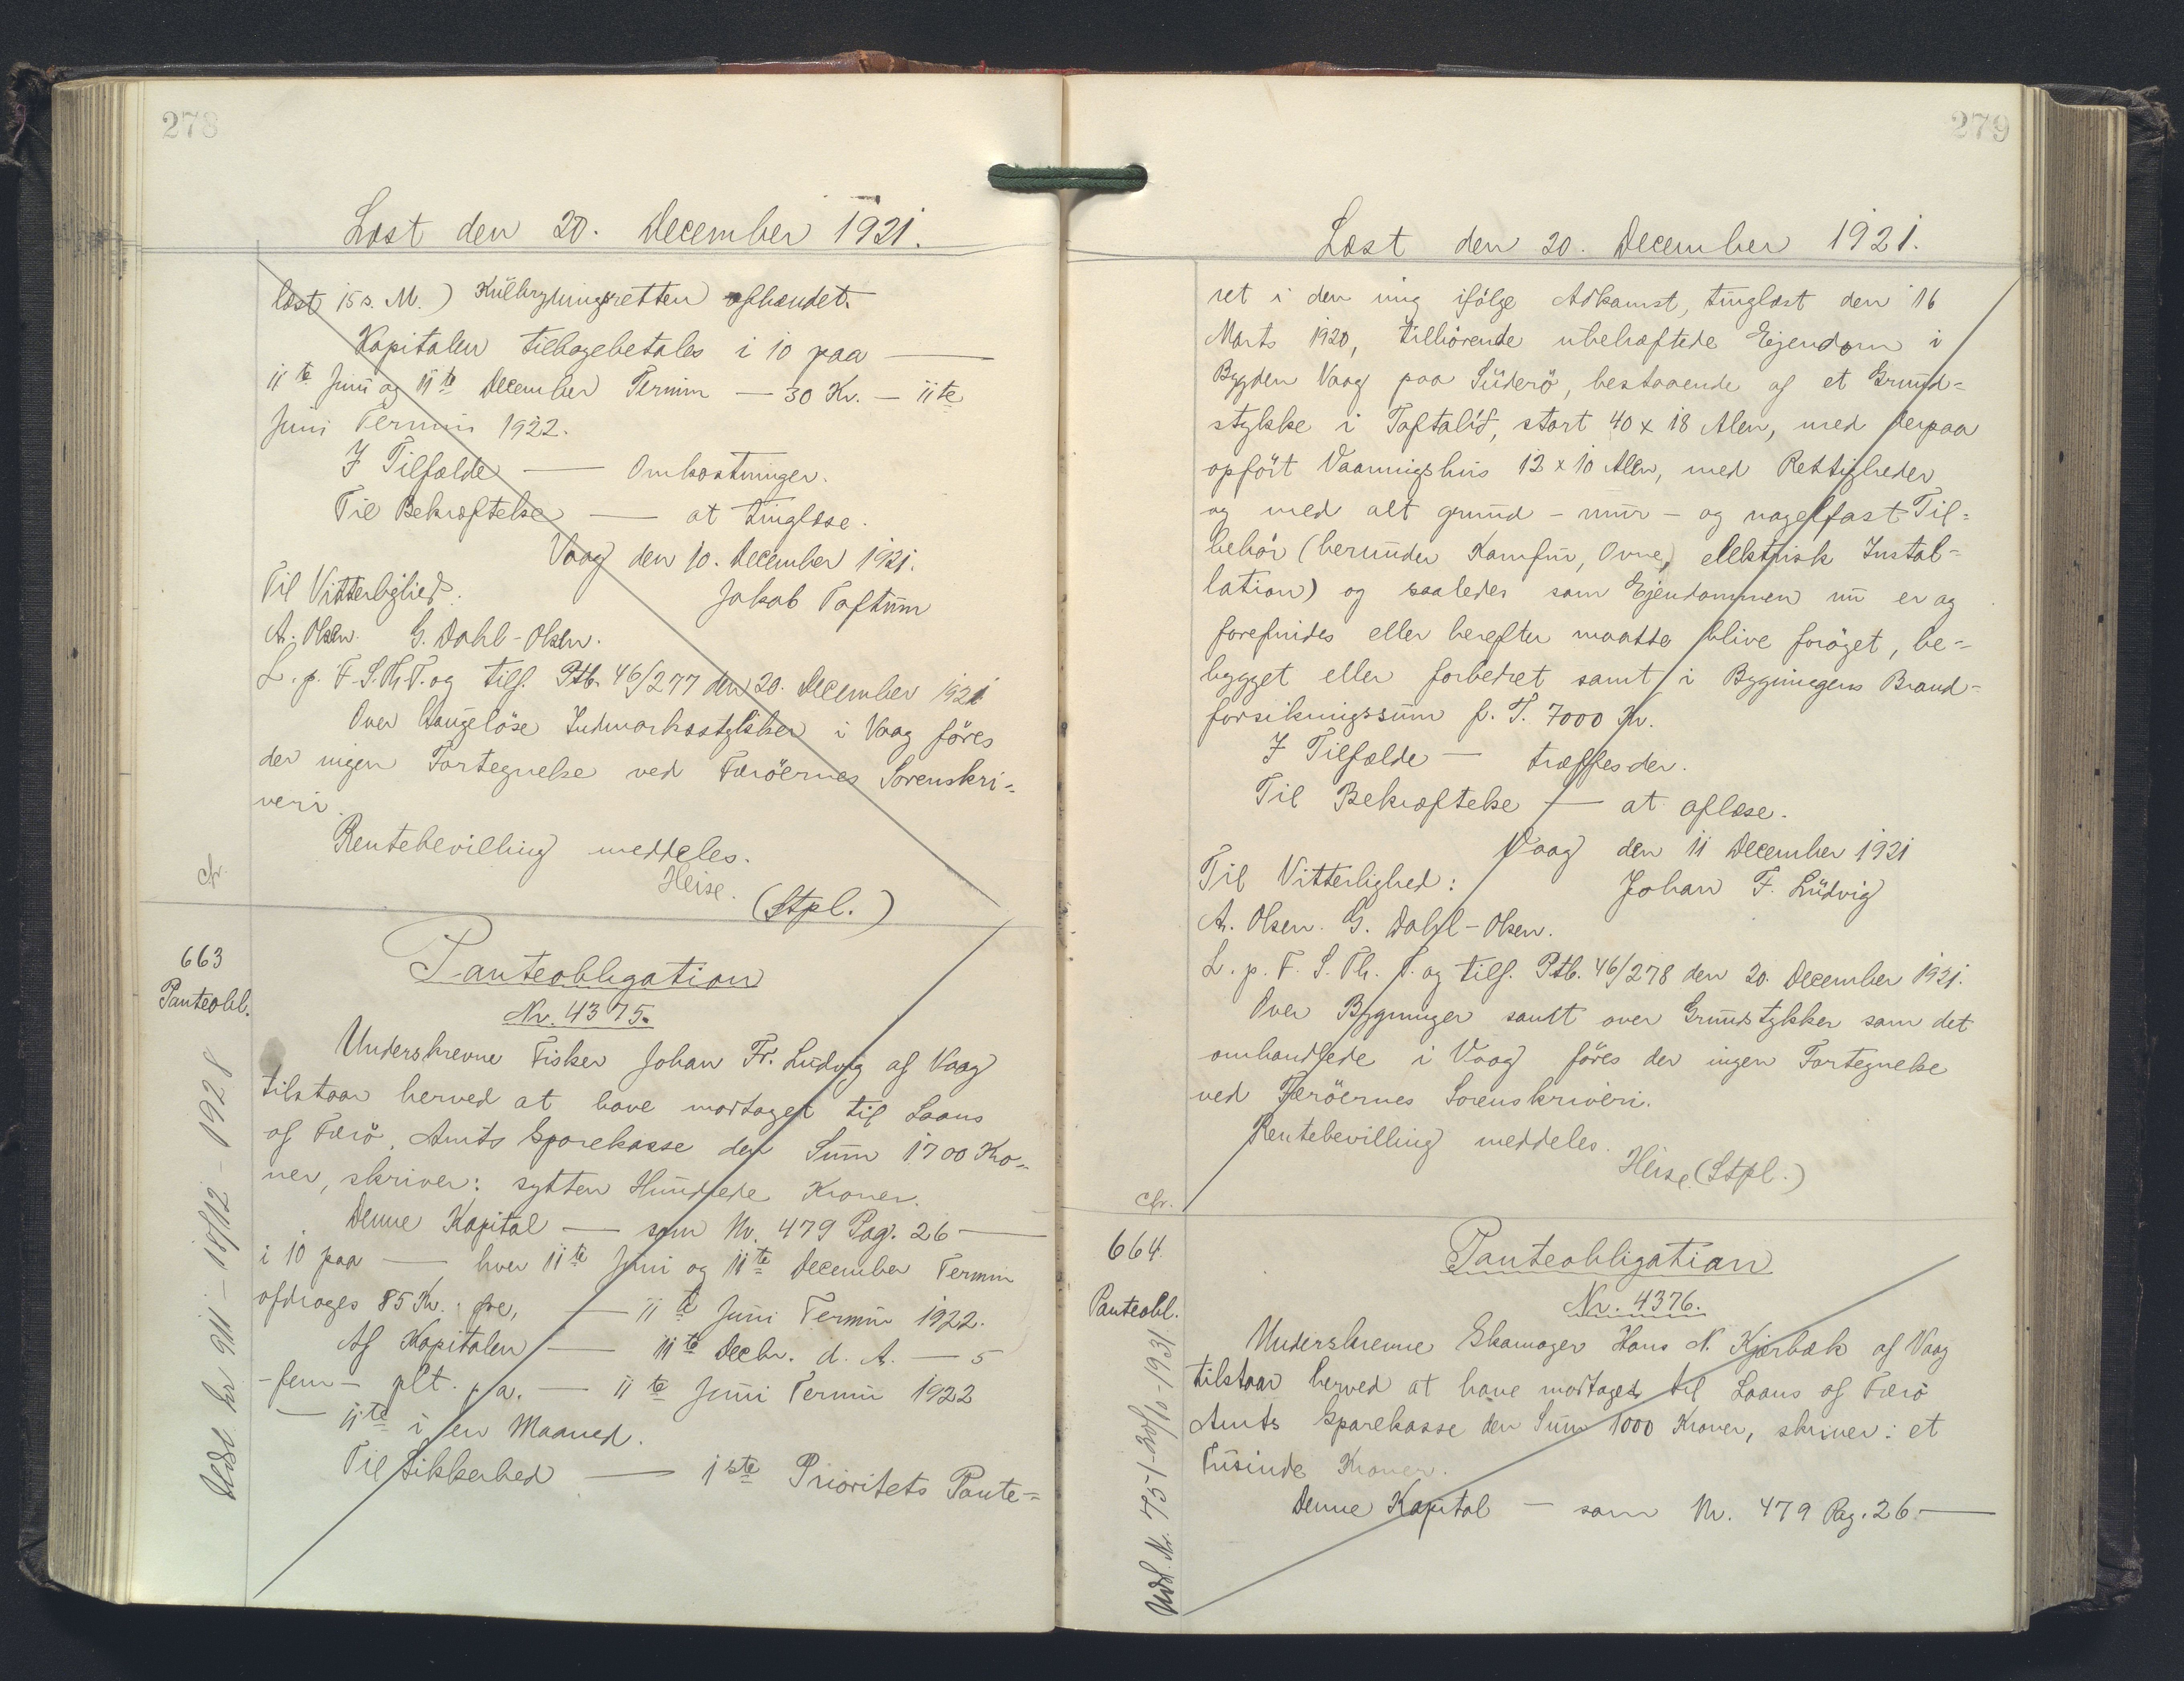 278
Læst den 20. December 1921.
læst 15 s. M.) Kulbrydningsretten afhændet.
Kapitalen tilbagebetales i 10 paa —
11te Juni og 11te December Termin — 30 Kr. — 11te
Juni Termin 1922.
I Tilfælde — Omkostninger.
Til Bekræftelse — at tinglæse.
Vaag den 10. December 1921.
Til Vitterlighed: Jakob Toftum
A. Olsen. G. Dahl-Olsen.
L. p. F. S. Th. T. og tilf. Ptb. 46/277 den 20. December 1921
Over haugeløse Indmarksstykker i Vaag føres
der ingen Fortegnelse ved Færøernes Sorenskri-
veri.
Rentebevilling meddeles.
Heise. (Stpl.)
Chr.
663
Panteobl.
Udsl. Nr 911 - 18/12 - 1928
Panteobligation
Nr. 4375.
Underskrevne Fisker Johan Fr. Ludvig af Vaag
tilstaar herved at have modtaget til Laans
af Færø Amts Sparekasse den Sum 1700 Kro-
ner, skriver: sytten Hundrede Kroner.
Denne Kapital — som Nr. 479 Pag. 26 —
i 10 paa — hver 11te Juni og 11te December Termin
afdrages 85 Kr. Øre, — 11te Juni Termin 1922.
Af Kapitalen — 11te Decbr. d. A. — 5
- fem - pCt. p. a. — 11te Juni Termin 1922
— 11te i en Maaned.
Til Sikkerhed — 1ste Prioritets Pante-
279
Læst den 20. December 1921.
ret i den mig ifølge Adkomst, tinglæst den 16
Marts 1920, tilhørende ubehæftede Ejendom i
Bygden Vaag paa Suderø, bestaaende af et Grund-
stykke i Toftalið, stort 40 x 18 Alen, med derpaa
opført Vaaningshus 12 x 10 Alen, med Rettigheder
og med alt grund- mur- og nagelfast Til-
behør (herunder Komfur, Ovne, elektrisk Instal-
lation) og saaledes som Ejendommen nu er og
forefindes eller herefter maatte blive forøget, be-
bygget eller forbedret samt i Bygningens Brand-
forsikringssum p. T. 7000 Kr.
I Tilfælde — træffes der.
Til Bekræftelse — at aflæse.
Vaag den 11 December 1921
Til Vitterlighed: Johan F. Ludvig
A. Olsen. G. Dahl-Olsen.
L. p. F. S. Th. T. og tilf. Ptb. 46/278 den 20. December 1921.
Over Bygninger samt over Grundstykker som det
omhandlede i Vaag føres der ingen Fortegnelse
ved Færøernes Sorenskriveri.
Rentebevilling meddeles.
Heise (Stpl.)
Chr.
664.
Panteobl.
Udsl. Nr. 751 - 30/10 - 1931
Panteobligation
Nr. 4376.
Underskrevne Skomager Hans N. Kjærbæk af Vaag
tilstaar herved at have modtaget til Laans af Færø
Amts Sparekasse den Sum 1000 Kroner, skriver: et
Tusinde Kroner.
Denne Kapital — som Nr. 479 Pag. 26 —